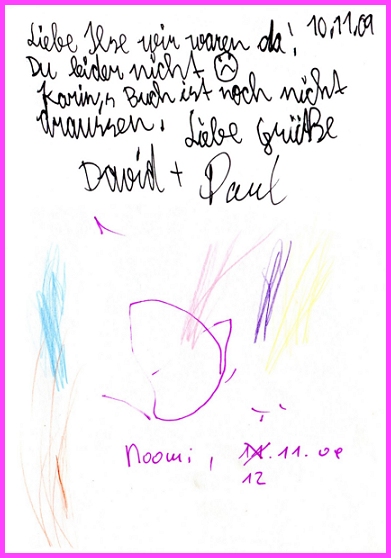 Liebe Ilse wir waren da! 10.11.09
Du leider nicht ☹
Karin,s Buch ist noch nicht
draussen. Liebe Grüße
David + Paul
Noomi, 11.11.09
12